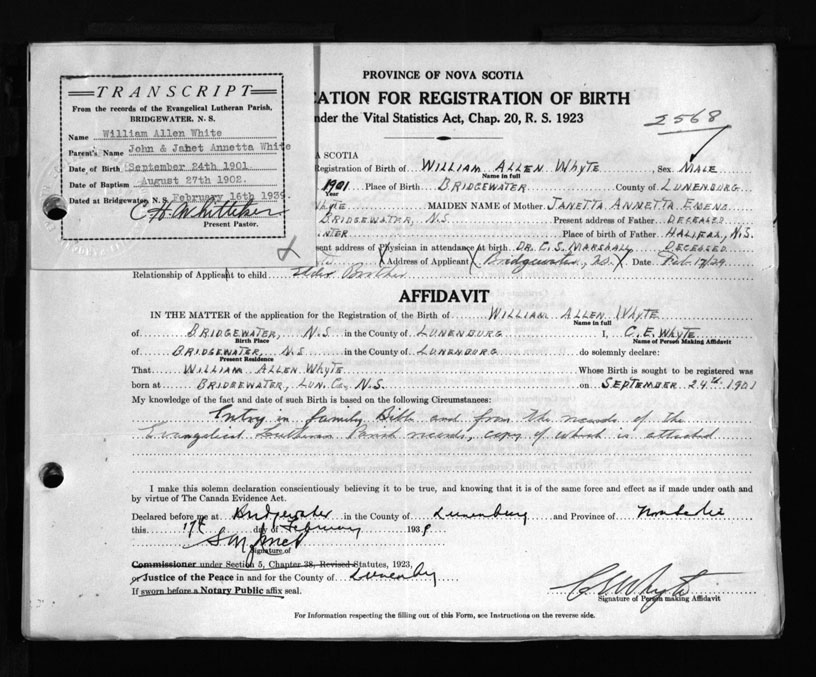 TRANSCRIPT
From the records of the Evangelical Lutheran Parish,
BRIDGEWATER, N. S.
Name William Allen White
Parent's Name John & Janet Annetta White
Date of Birth September 24th 1901
Date of Baptism August 27th 1902.
Dated at Bridgewater, N.S. February 16th 1939.
C. H. Whitteker
Present Pastor.
PROVINCE OF NOVA SCOTIA
CATION FOR REGISTRATION OF BIRTH
nder the Vital Statistics Act, Chap. 20, R. S. 1923
2568
A SCOTIA
Registration of Birth of WILLIAM ALLEN WHYTE Sex MALE
Name in full
1901 Place of Birth BRIDGEWATER County of LUNENBURG
Year
WHYTE MAIDEN NAME of Mother JANETTA ANNETTA
BRIDGEWATER, N.S. Present address of Father DECEASED
NTER Place of birth of Father HALIFAX, N.S.
sent address of Physician in attendance at birth DR. C. S. MARSHALL DECEASED
Address of Applicant Bridgewater, N.S. Date Feb. 17/39
Relationship of Applicant to child Elder Brother
AFFIDAVIT
IN THE MATTER of the application for the Registration of the Birth of WILLIAM ALLEN WHYTE
Name in full
of BRIDGEWATER, N.S. in the County of LUNENBURG I, C. E. WHYTE
Birth Place Name of Person Making Affidavit
of BRIDGEWATER, N.S in the County of LUNENBURG do solemnly declare:
Present Residence
That WILLIAM ALLEN WHYTE Whose Birth is sought to be registered was
born at BRIDGEWATER, LUN. Co., N.S. on SEPTEMBER 24th 1901
My knowledge of the fact and date of such Birth is based on the following Circumstances:
Entry in family Bible and from the records of the
Evangelical Lutheran Parish records, copy of which is attached
I make this solemn declaration conscientiously believing it to be true, and knowing that it is of the same force and effect as if made under oath and
by virtue of The Canada Evidence Act.
Declared before me at Bridgewater in the County of Lunenburg and Province of Nova Scotia
this 17th day of February 1939
Signature of
Commissioner under Section 5, Chapter 38, Revised Statutes, 1923,
or Justice of the Peace in and for the County of Lunenburg
If sworn before a Notary Public affix seal.
C E Whyte
Signature of Person making Affidavit
For Information respecting the filling out of this Form, see Instructions on the reverse side.